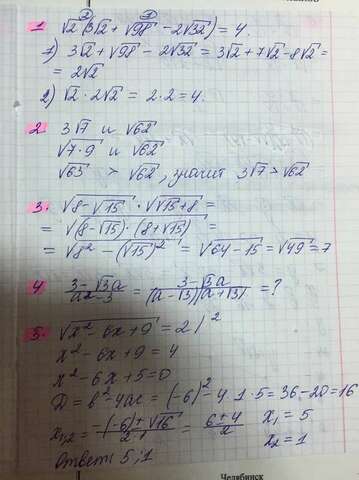 1. √2(3√2 + √98 - 2√32) = 4.
1) 3√2 + √98 - 2√32 = 3√2 + 7√2 - 8√2 =
= 2√2
2) √2 · 2√2 = 2·2 = 4.
2. 3√7 и √62
√7·9 и √62
√63 > √62, значит 3√7 > √62
3. √8-√15 · √√15+8 =
= √(8-√15)·(8+√15) =
= √8² - (√15)² = √64-15 = √49 = 7
4. 3-√3a / a²-3 = 3-√3a / (a-√3)(a+√3) = ?
5. √x²-6x+9 = 2 |²
x² - 6x + 9 = 4
x² - 6x + 5 = 0
D = b² - 4ac = (-6)² - 4·1·5 = 36 - 20 = 16
x₁,₂ = -(-6)±√16 / 2·1 = 6±4 / 2 x₁ = 5
x₂ = 1
Ответ: 5; 1
Челябинск